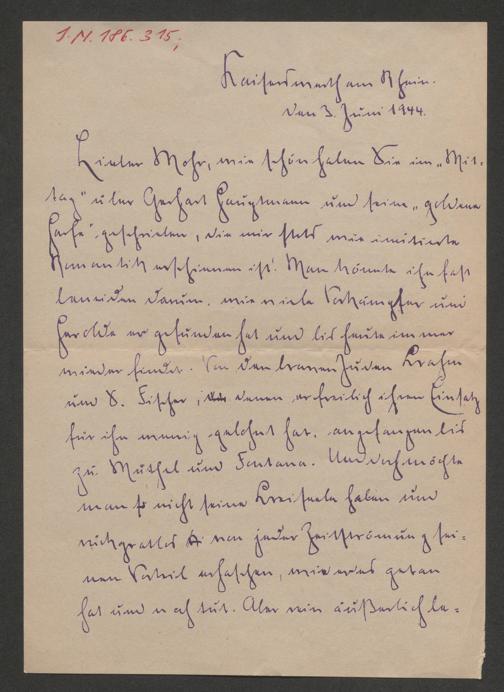 I.N. 186.315;
Kaiserswerth am Rhein.
den 3. Juni 1944.
Lieber Mohr, wie schön haben Sie im „Mit-
tag" über Gerhart Hauptmann und seine „goldene
Harfe" geschrieben, die mir stets wie imitierte
Romantik erschienen ist! Man könnte ihn fast
beneiden darum, wie viele Vorkämpfer und
Herolde er gefunden hat und bis heute immer
wieder findet. Von den braven Juden Brahm
und S. Fischer, denen er freilich ihren Einsatz
für ihn wenig gelohnt hat, angefangen bis
zu Müthel und Fontana. Und doch möchte
man nicht seine Breiseele haben und
rückgratlos von jeder Zeitströmung sei-
nen Vorteil erhaschen, wie er es getan
hat und noch tut. Aber rein äußerlich be-